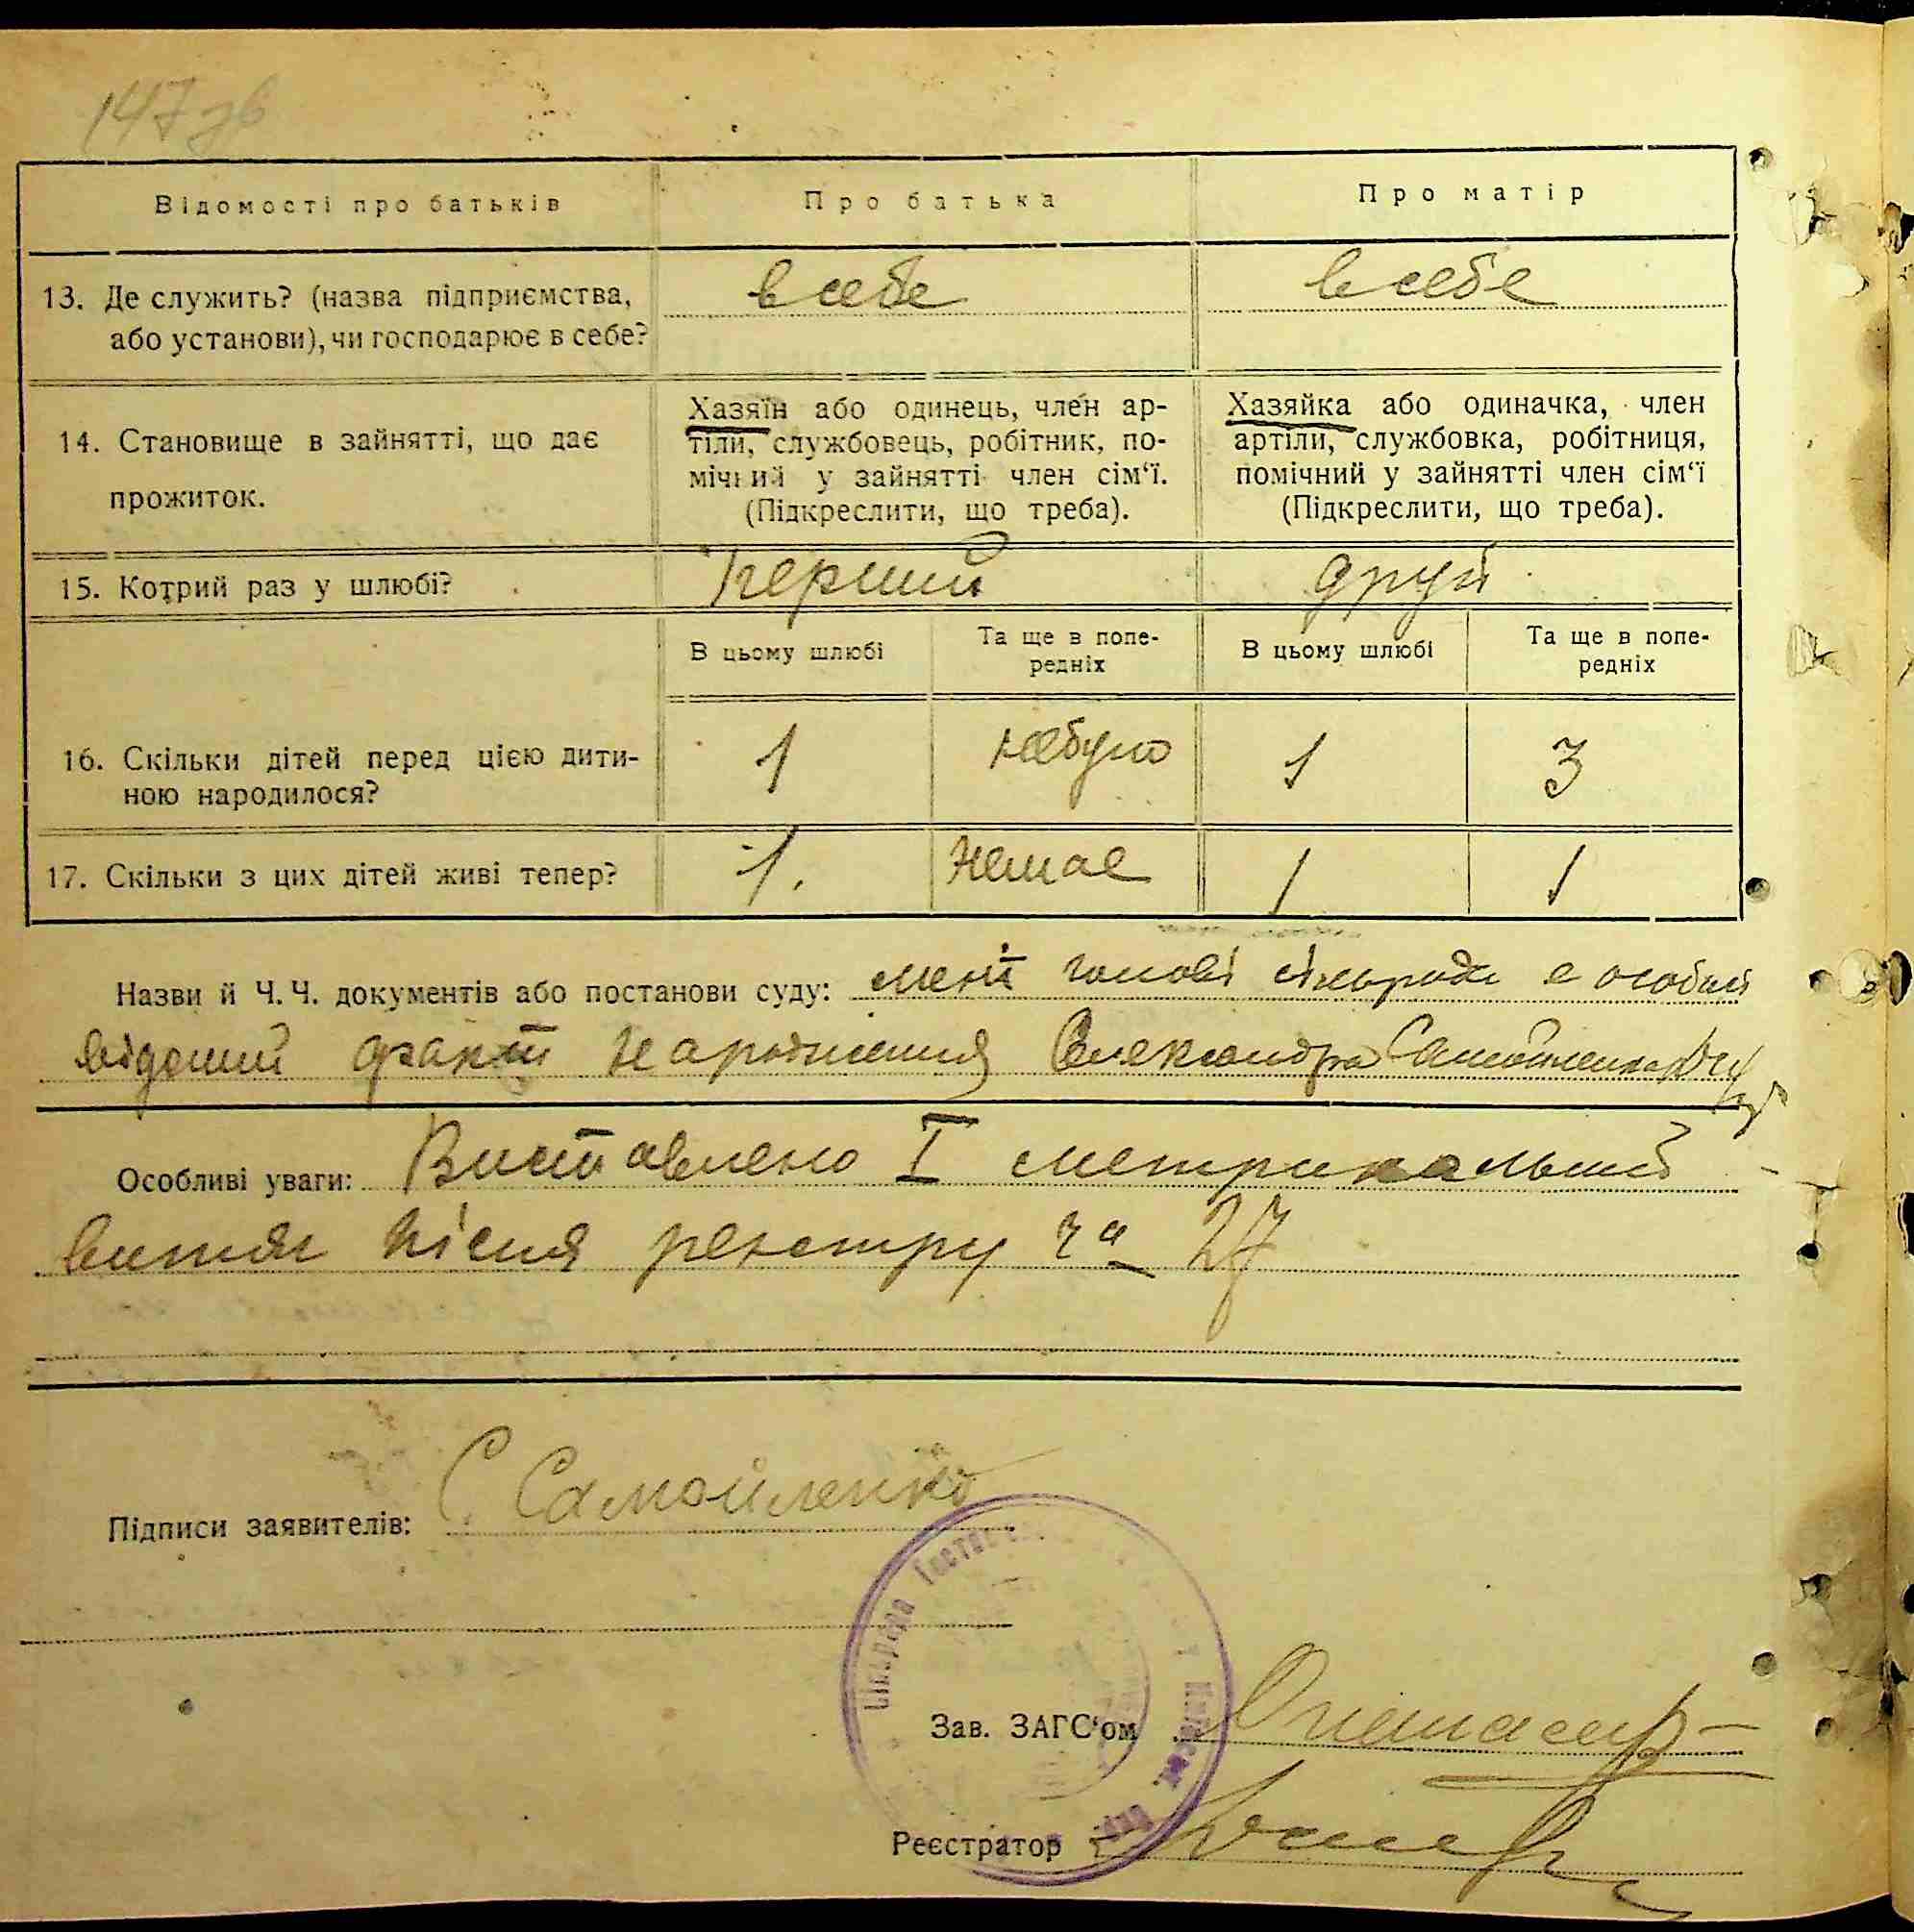 147 зв
Відомості про батьків
Про батька
Про матір
13. Де служить? (назва підприємства,
або установи), чи господарює в себе?
в себе
в себе
14. Становище в зайнятті, що дає
прожиток.
Хазяїн або одинець, член ар-
тіли, службовець, робітник, по-
мічний у зайнятті член сім‘ї.
(Підкреслити, що треба).
Хазяйка або одиначка, член
артіли, службовка, робітниця,
помічний у зайнятті член сім‘ї
(Підкреслити, що треба).
15. Котрий раз у шлюбі?
Перший
другий
В цьому шлюбі
Та ще в попе-
редніх
В цьому шлюбі
Та ще в попе-
редніх
16. Скільки дітей перед цією дити-
ною народилося?
1
небуло
1
3
17. Скільки з цих дітей живі тепер?
1.
Немае
1
1
Назви й Ч. Ч. документів або постанови суду: мені голові сільради е особисто
відомий факт народження Олександра Самойленка
Особливі уваги: Виставлено I метрикальний
витяг після реєстру ч. 27
Підписи заявителів: С. Самойленко
Сільрада
Зав. ЗАГС‘ом
Реєстратор